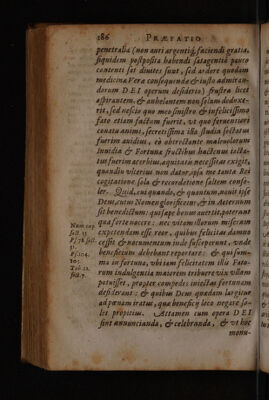 186 PRÆFATIO
penetralia (non auri argentiq; faciendi gratia,
siquidem postposita habendi satagentia pauco
contenti sat diuites sunt, sed ardore quodam
medicinæ Veræ consequendæ & iusto admiran-
dorum DEI operum desiderio) frustra licet
aspirantem, & anhelantem non solum deduxe-
rit, sed nescio quo meo sinistro & infelicissimo
fato etiam factum fuerit, vt quo feruentiori
conatu animi, secretissima illa studia sectatus
fuerim auidius, eo obtrectante maleuolorum
Inuidia & Fortuna fructibus hactenus iocta-
tus fuerim acerbius, æquitatis necessitas exigit,
quandiu viterius non datur, ipsa me tanta Rei
cogitatione sola & recordatione saltem conso-
ler. Quid, cui quando, & quantum, nouit ipse
Deus, cuius Nomen glorificem, & in Aeternum
sit benedictum; quisquæ bonum auertit, poterunt
quæ forte nocere: nec vitam illorum miseram
expetendam esse reor, quibus felicitas damno
cessit & nocumentum inde susceperunt, vnde
beneficium debebant reportare: & quis sum-
ma in fortuna, vbi tam felicitatem illis Fato-
rum indulgentia maiorem tribuere vix vllam
potuisset, propter compedes iniectas fortunam
desiderant: & quibus Deus quædam largitur
ad pœnam iratus, quæ beneficij loco negare so-
let propitius. Attamen cum opera DEI
sint annuncianda, & celebranda, & vt hoc
monu-
Num. cap.
sect. 33.
Ps. 78. sect.
31.
Ps. 104.
105.
Tob. 12.
sect. 7.